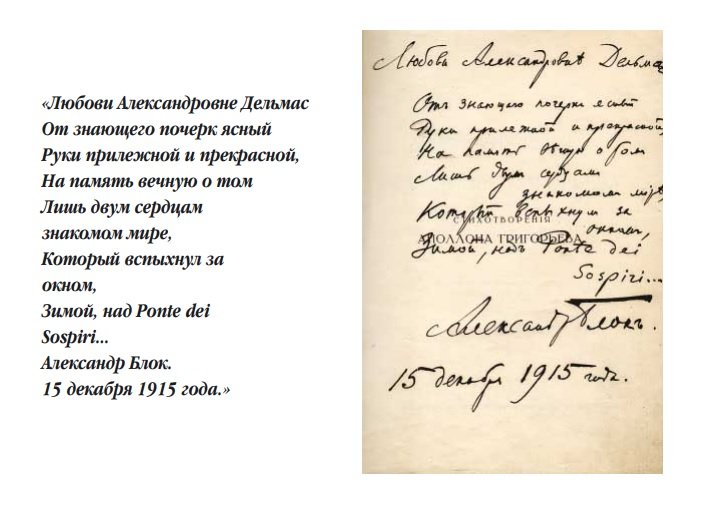 «Любови Александровне Дельмас
От знающего почерк ясный
Руки прилежной и прекрасной,
На память вечную о том
Лишь двум сердцам
знакомом мире,
Который вспыхнул за
окном,
Зимой, над Ponte dei
Sospiri...
Александр Блок.
15 декабря 1915 года.»
Любови Александровнѣ Дельмас
Отъ знающаго почеркъ ясный
Руки прилежной и прекрасной,
На память вѣчную о томъ
Лишь двум сердцамъ
знакомом мірѣ,
Который вспыхнул за
окном,
СТИХОТВОРЕНІЯ
АПОЛЛОНА ГРИГОРЬЕВА
Зимой, надъ Ponte dei
Sospiri...
Александръ Блокъ.
15 декабря 1915 года.